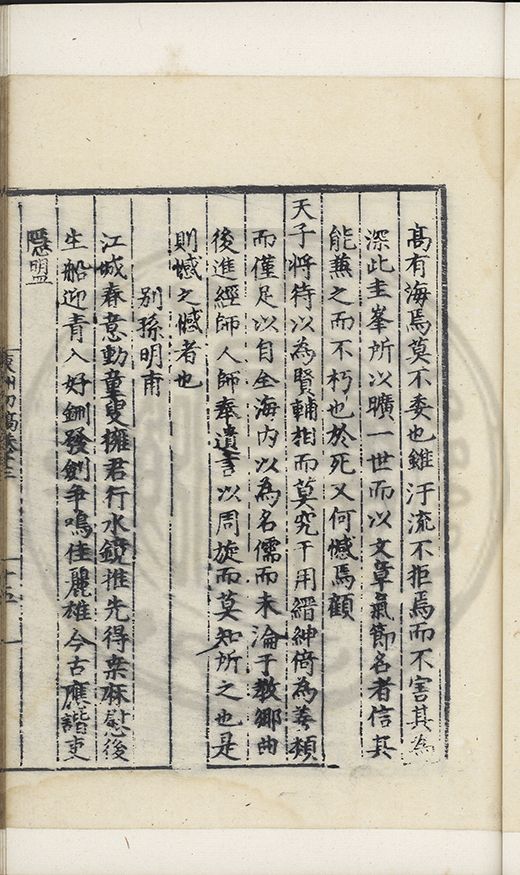 高有海焉莫不委也雖汙流不拒焉而不害其為
深此圭峯所以曠一世而以文章氣節名者信其
能蕪之而不朽也於死又何憾焉顧
天子將待以為賢輔相而莫究于用縉紳倚為蓍類
而僅足以自全海内以為名儒而未淪于教鄉曲
後進經師人師奉遺言以周旋而莫知所之也是
則憾之憾者也
別孫明甫
江城春意動童叟擁君行水鏡推先得桒麻慰後
生船迎青入好鉶發劍爭鳴佳麗雄今古應諧吏
隱盟
初稿卷之二
十五